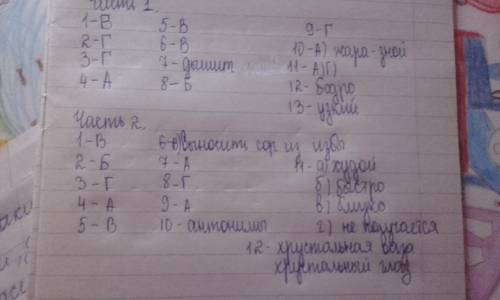 Часть 1.
1-В 5-В 9-Г
2-Г 6-В 10-А) жара-зной
3-Г 7-дышит 11-А)Г)
4-А 8-Б 12-бодро
13-узкий
Часть 2.
1-В 6-в)Выносить сор из избы
2-Б 7-А 11-а)худой
3-Г 8-Г б)быстро
4-А 9-А в)близко
5-В 10-антонимы г) не получается
12-хрустальная ваза
хрустальный глаз